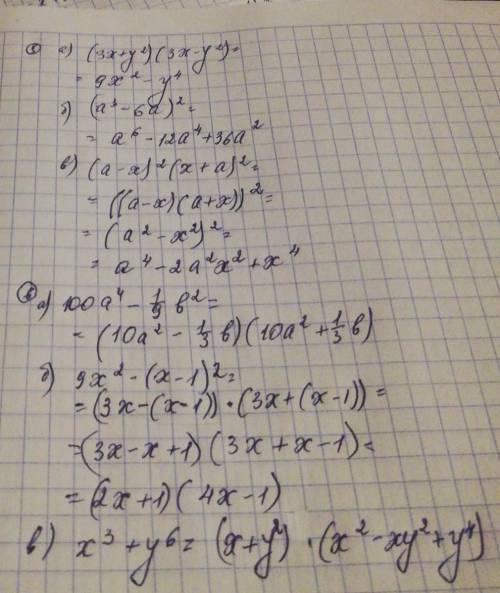 ① а) (3x+y²)(3x-y²)=
= 9x² - y⁴
б) (a³ - 6a)²=
= a⁶ - 12a⁴ + 36a²
в) (a-x)²(x+a)²=
= ((a-x)(a+x))²=
= (a² - x²)²=
= a⁴ - 2a²x² + x⁴
а) 100a⁴ - 1/9 в²=
= (10a² - 1/3 в)(10a² + 1/3 в)
б) 9x² - (x-1)²=
= (3x-(x-1))·(3x+(x-1))=
=(3x-x+1)(3x+x-1)=
= (2x+1)(4x-1)
в) x³ + y⁶ = (x+y²)·(x² - xy² + y⁴)